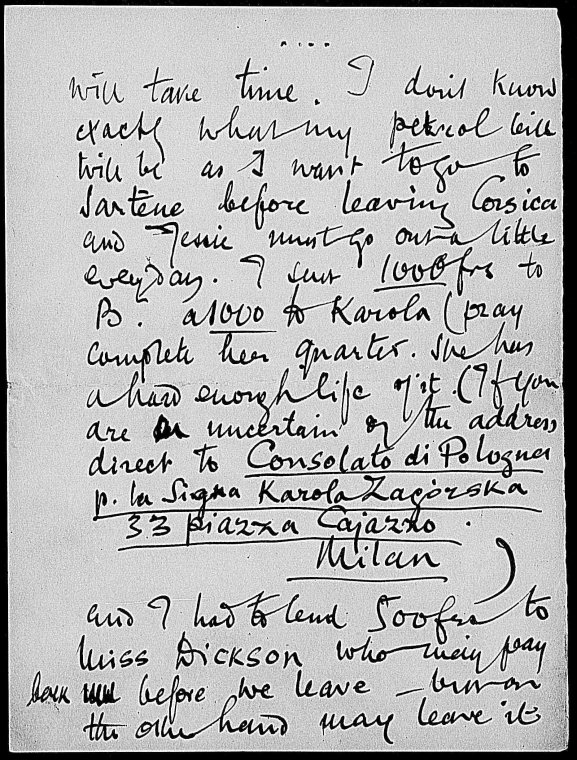 . . . .
will take time. I don't know
exactly what my petrol bill
will be as I want to go to
Sartène before leaving Corsica
and Jessie must go out a little
every day. I sent 1000 frs to
B. a 1000 to Karola (pray
complete her quarter. She has
a hard enough life of it. (If you
are uncertain of the address
direct to Consolato di Polognia
p. la Signa Karola Zagórska
33 piazza Cajazzo.
Milan)
and I had to lend 500 frs to
Miss Dickson who may pay
back before we leave – but on
the other hand may leave it